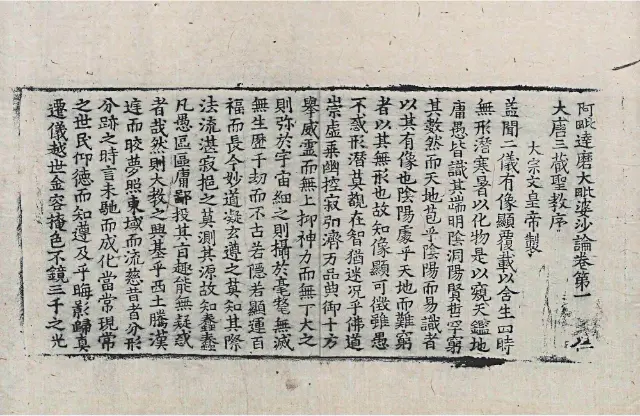 阿毗達磨大毗婆沙論卷第一
大唐三藏聖教序
太宗文皇帝製
蓋聞二儀有像顯覆載以含生四時
無形潛寒暑以化物是以窺天鑑地
庸愚皆識其端明陰洞陽賢哲罕窮
其數然而天地苞乎陰陽而易識者
以其有像也陰陽處乎天地而難窮
者以其無形也故知像顯可徵雖愚
不惑形潛莫覩在智猶迷況乎佛道
崇虛乘幽控寂弘濟万品典御十方
舉威靈而無上抑神力而無下大之
則弥於宇宙細之則攝於毫氂無滅
無生歷千劫而不古若隱若顯運百
福而長今妙道凝玄遵之莫知其際
法流湛寂挹之莫測其源故知蠢蠢
凡愚區區庸鄙投其旨趣能無疑惑
者哉然則大教之興基乎西土騰漢
庭而皎夢照東域而流慈昔者分形
分跡之時言未馳而成化當常現常
之世民仰德而知遵及乎晦影歸真
遷儀越世金容掩色不鏡三千之光